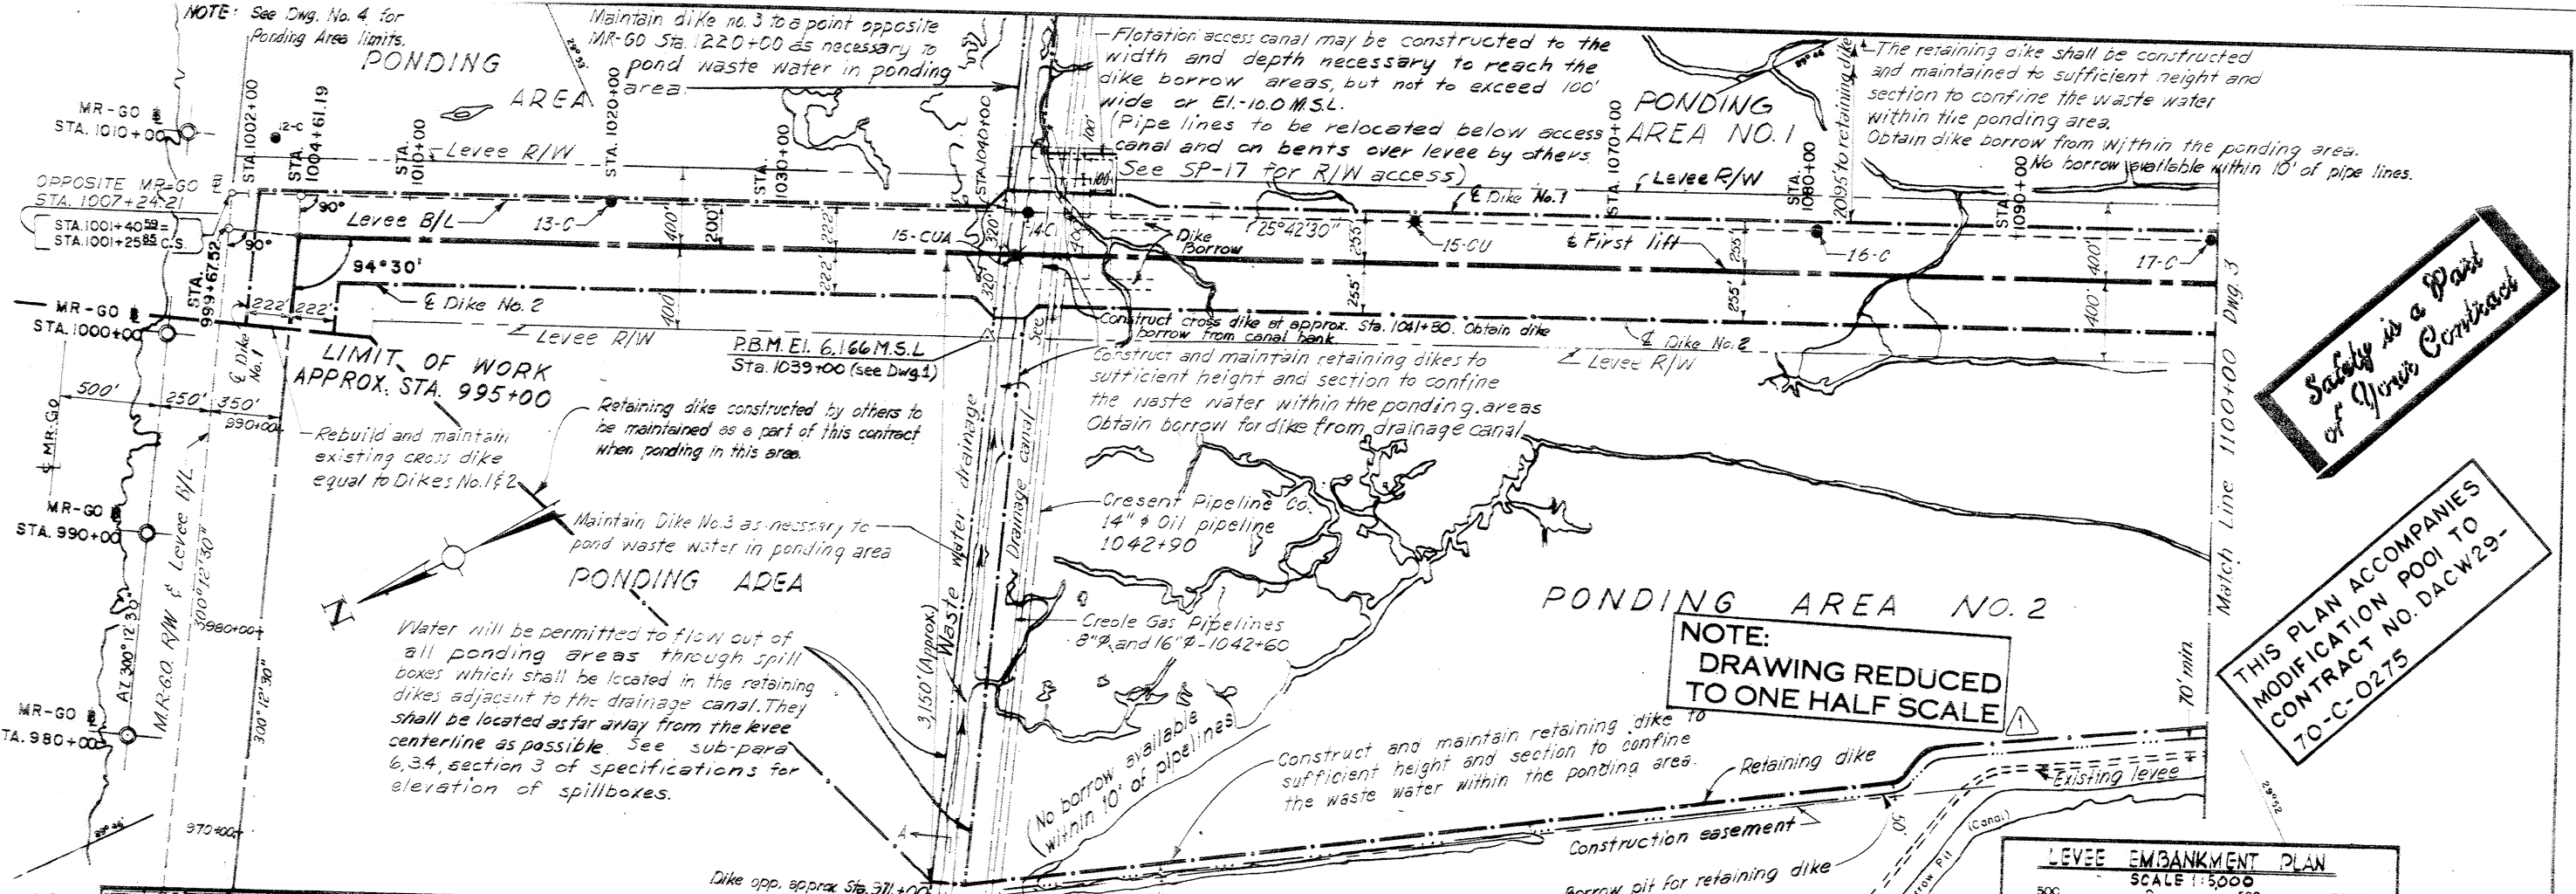 NOTE: See Dwg. No. 4 for
Ponding Area limits.
PONDING
AREA
Maintain dike no. 3 to a point opposite
MR-GO Sta. 1220+00 as necessary to
pond waste water in ponding
area.
Flotation access canal may be constructed to the
width and depth necessary to reach the
dike borrow areas, but not to exceed 100'
wide or El.-10.0 M.S.L.
(Pipe lines to be relocated below access
canal and on bents over levee by others.
See SP-17 for R/W access)
PONDING
AREA NO. 1
2095' to retaining dike
The retaining dike shall be constructed
and maintained to sufficient height and
section to confine the waste water
within the ponding area.
Obtain dike borrow from within the ponding area.
No borrow available within 10' of pipe lines.
MR-GO ℄
STA. 1010+00
STA. 1002+00
12-C
STA.
1004+61.19
STA.
1010+00
STA. 1020+00
STA.
1030+00
STA. 1040+00
STA. 1070+00
STA.
1080+00
STA.
1090+00
Levee R/W
Levee R/W
OPPOSITE MR-GO ℄
STA. 1007+24.21
STA. 1001+40.59=
STA. 1001+25.85 C.S.
90°
90°
Levee B/L
13-C
400'
200'
222'
15-CUA
320'
14-C
100'
100'
Dike
Borrow
25°42'30"
255'
℄ Dike No. 1
15-CU
℄ First lift
255'
16-C
400'
17-C
STA.
999+67.52
94°30'
222'
222'
℄ Dike No. 2
400'
222'
320'
255'
255'
400'
MR-GO ℄
STA. 1000+00
℄ Dike
No. 1
LIMIT OF WORK
APPROX. STA. 995+00
Levee R/W
P.B.M. El. 6.166 M.S.L
Sta. 1039+00 (see Dwg.1)
See
Construct cross dike at approx. Sta. 1041+80. Obtain dike
borrow from canal bank
℄ Dike No. 2
Levee R/W
Construct and maintain retaining dikes to
sufficient height and section to confine
the waste water within the ponding areas
Obtain borrow for dike from drainage canal
500'
250'
350'
990+00
℄ MR-GO
Rebuild and maintain
existing cross dike
equal to Dikes No. 1 & 2
Retaining dike constructed by others to
be maintained as a part of this contract
when ponding in this area.
MR-GO ℄
STA. 990+00
M.R.G.O. R/W & Levee B/L
300°12'30"
AZ 300°12'30"
980+00
300°12'30"
N
Maintain Dike No.3 as necssary to
pond waste water in ponding area
PONDING AREA
Waste water drainage
Drainage canal
3,150' (Approx.)
Cresent Pipeline Co.
14" ϕ Oil pipeline
1042+90
Creole Gas Pipelines
8"ϕ and 16"ϕ-1042+60
PONDING AREA NO. 2
NOTE:
DRAWING REDUCED
TO ONE HALF SCALE
1
MR-GO ℄
TA. 980+00
Water will be permitted to flow out of
all ponding areas through spill
boxes which shall be located in the retaining
dikes adjacent to the drainage canal. They
shall be located as far away from the levee
centerline as possible. See sub-para
6,3.4, section 3 of specifications for
elevation of spillboxes.
970+00
A
(No borrow available
within 10' of pipelines)
Construct and maintain retaining dike to
sufficient height and section to confine
the waste water within the ponding area.
Retaining dike
Construction easement
50'
Existing levee
(Canal)
Dike opp. approx. Sta. 971+00
Borrow pit for retaining dike
70' min.
Match Line 1100+00 Dwg. 3
29°52
Safety is a Part
of Your Contract
THIS PLAN ACCOMPANIES
MODIFICATION P001 TO
CONTRACT NO. DACW29-
70-C-0275
LEVEE EMBANKMENT PLAN
SCALE 1:5000
500